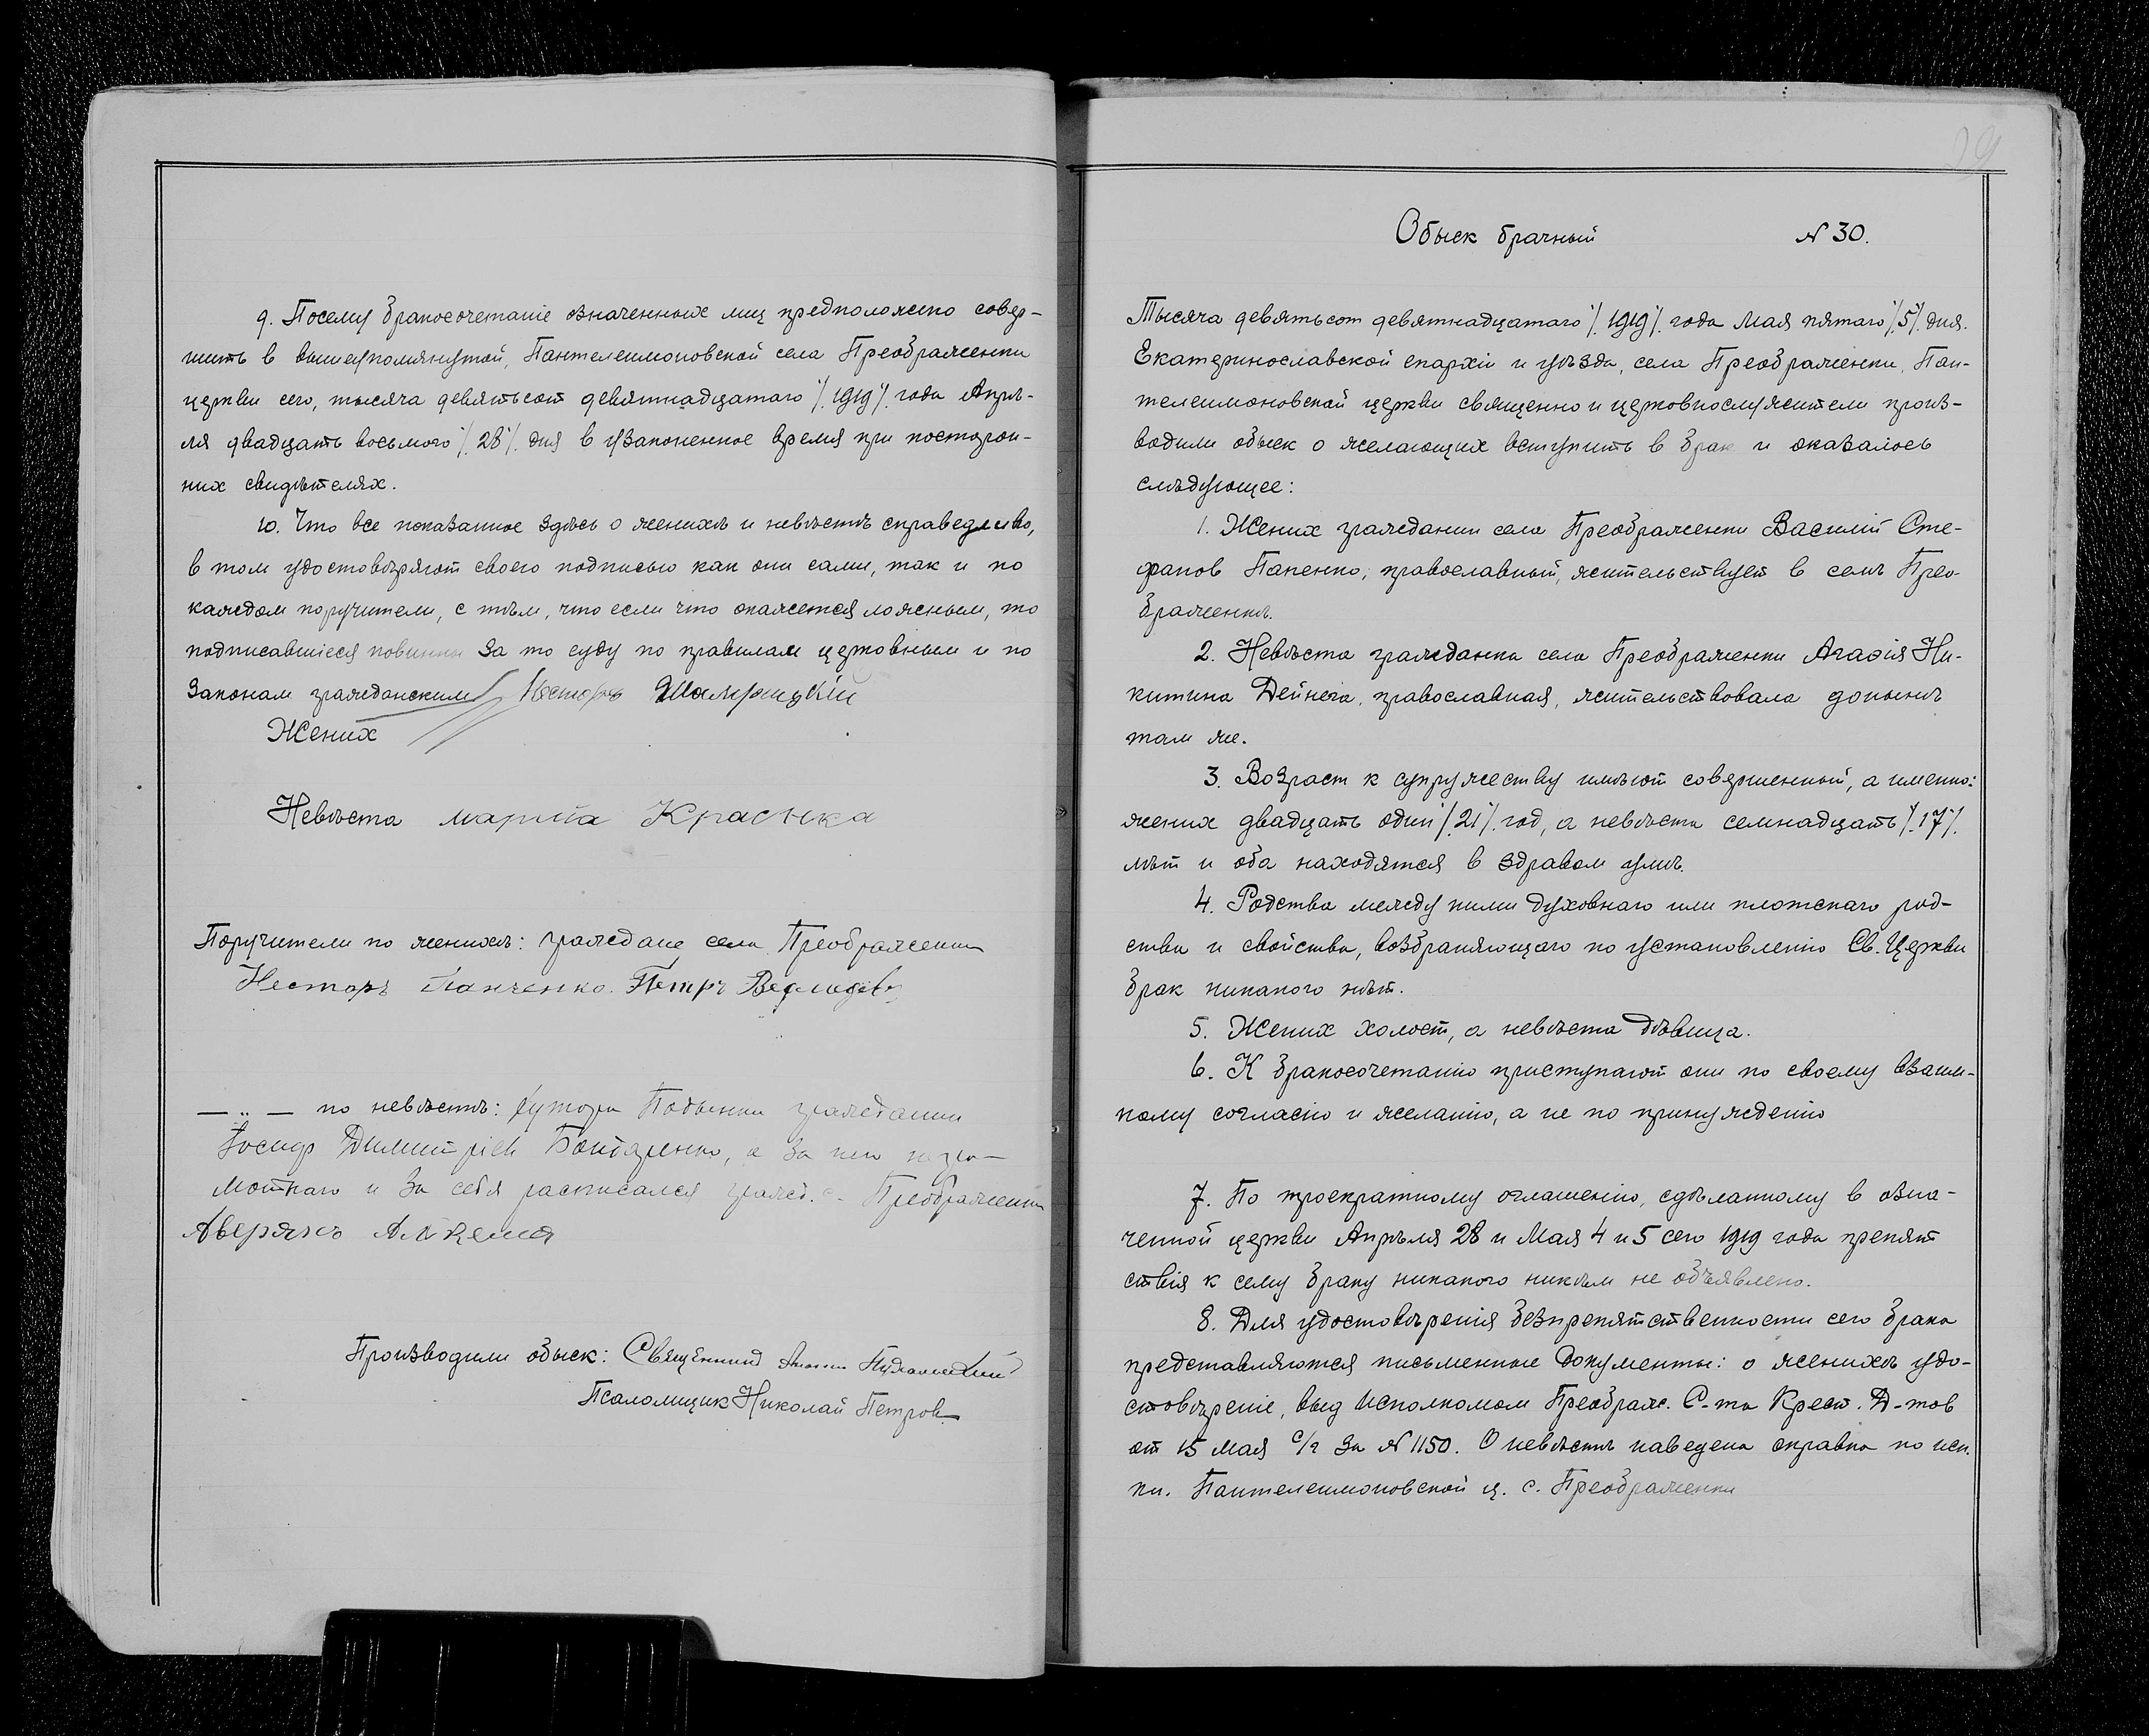 9. Посему бракосочетаніе означенных лиц предположено совер-
шить в вышеупомянутой, Пантелеимоновской села Преображенки
церкви сего, тысяча девятьсот девятнадцатаго /1919/ года Апрѣ-
ля двадцать восьмого /28/ дня в узаконенное время при посторон-
них свидѣтелях.
10. Что все показанное здѣсь о женихѣ и невѣстѣ справедливо,
в том удостовѣряют своею подписью как они сами, так и по
каждом поручители, с тѣм, что если что окажется ложным, то
подписавшіеся повинны за то суду по правилам церковным и по
законам гражданским Несторъ
Жених
Невѣста мария Краснка
Поручители по женихѣ: граждане села Преображенки
Несторъ Панченко. Петръ
— " — по невѣстѣ: хутора гражданин
Іосиф Димитріев Бондаренко, а за него негра-
мотнаго и за себя расписался гражд. с. Преображенки
Аверянъ
Производили обыск: Священник
Псаломщик Николай Петров
29
Обыск брачный N 30.
Тысяча девятьсот девятнадцатаго /1919/ года Мая пятаго /5/ дня.
Екатеринославской епархіи и уѣзда, села Преображенки, Пан-
телеимоновской церкви священно и церковнослужители произ-
водили обыск о желающих вступить в брак и оказалось
слѣдующее:
1. Жених гражданин села Преображенки Василій Сте-
фанов Папенко, православный, жительствует в селѣ Прео-
браженкѣ.
2. Невѣста гражданка села Преображенки Агафія Ни-
китина Дейнега, православная, жительствовала донынѣ
там же.
3. Возраст к супружеству имѣют совершенный, а именно:
жених двадцать один /21/ год, а невѣста семнадцать /17/
лѣт и оба находятся в здравом умѣ.
4. Родства между ними духовнаго или плотскаго род-
ства и свойства, возбраняющаго по установленію Св. Церкви
брак никакого нѣт.
5. Жених холост, а невѣста дѣвица.
6. К бракосочетанію приступают они по своему взаим-
ному согласію и желанію, а не по принужденію
7. По троекратному оглашенію, сдѣланному в озна-
ченной церкви Апрѣля 28 и Мая 4 и 5 сего 1919 года препят
ствія к сему браку никакого никѣм не объявлено.
8. Для удостовѣренія безпрепятственности сего брака
представляются письменные документы: о женихѣ удо-
стовѣреніе, выд Исполкомом Преображ. С-та Крест. Д-тов
от 15 мая с/г за N 1150. О невѣстѣ наведена справка по исп.
кн. Пантелеимоновской ц. с. Преображенки